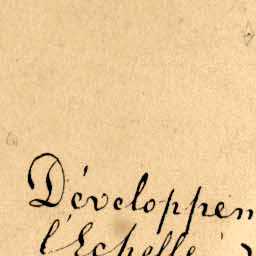 Développem
l'Echelle